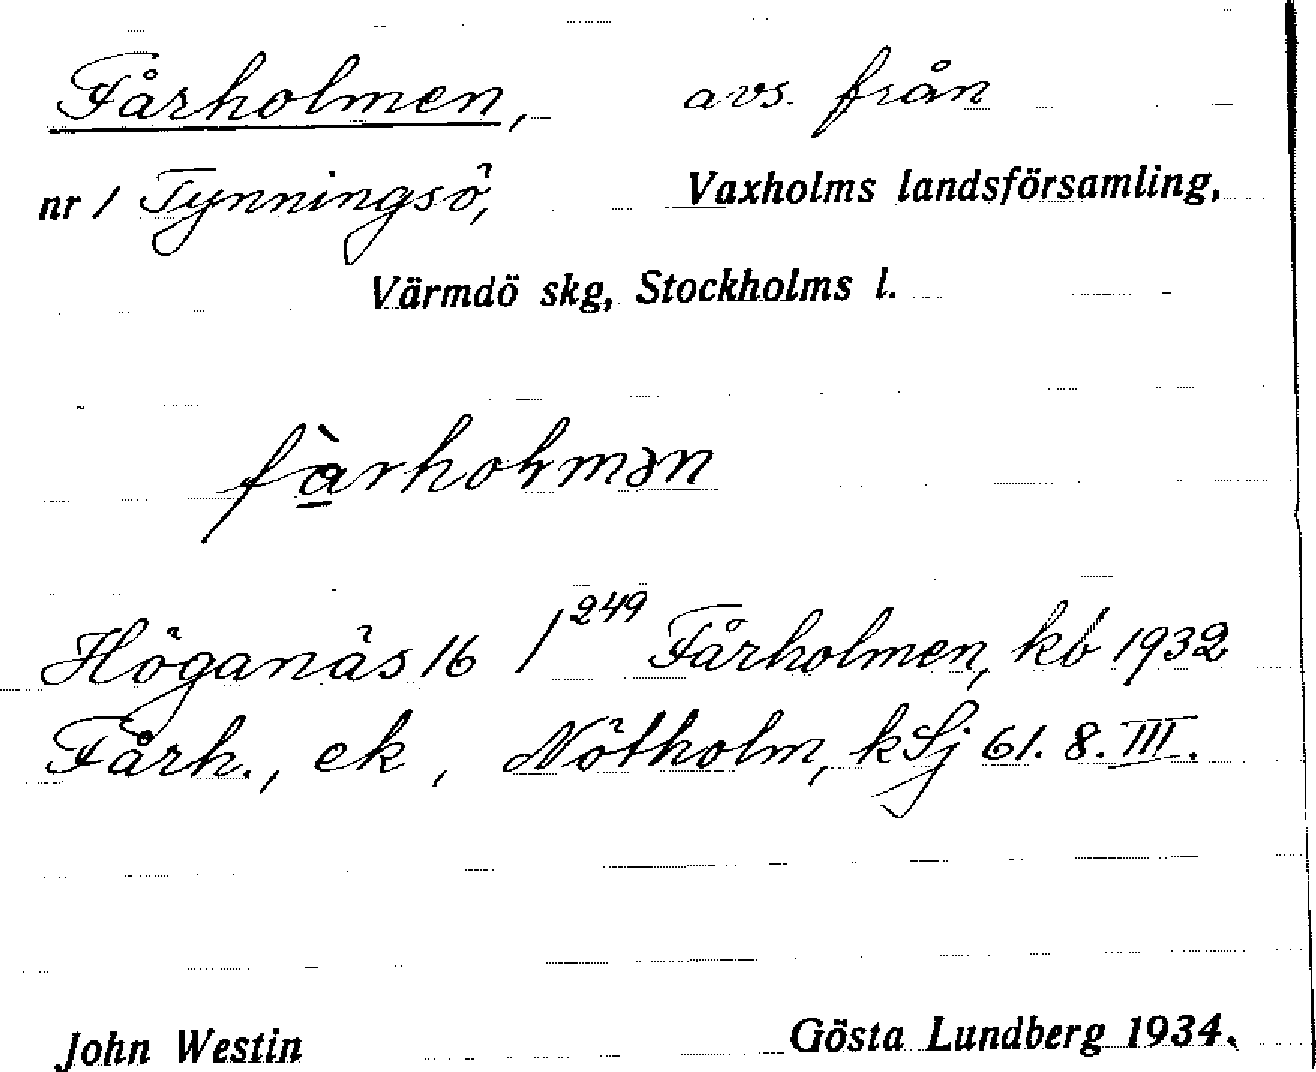 Fårholmen, avs. från
nr 1 Tynningsö, Vaxholms landsförsamling,
Värmdö skg, Stockholms l.
fàrholmən
Höganäs 16 /249 Fårholmen, kb 1932
Fårh., ek, Nötholm, kSj 61. 8. III.
John Westin Gösta Lundberg 1934.